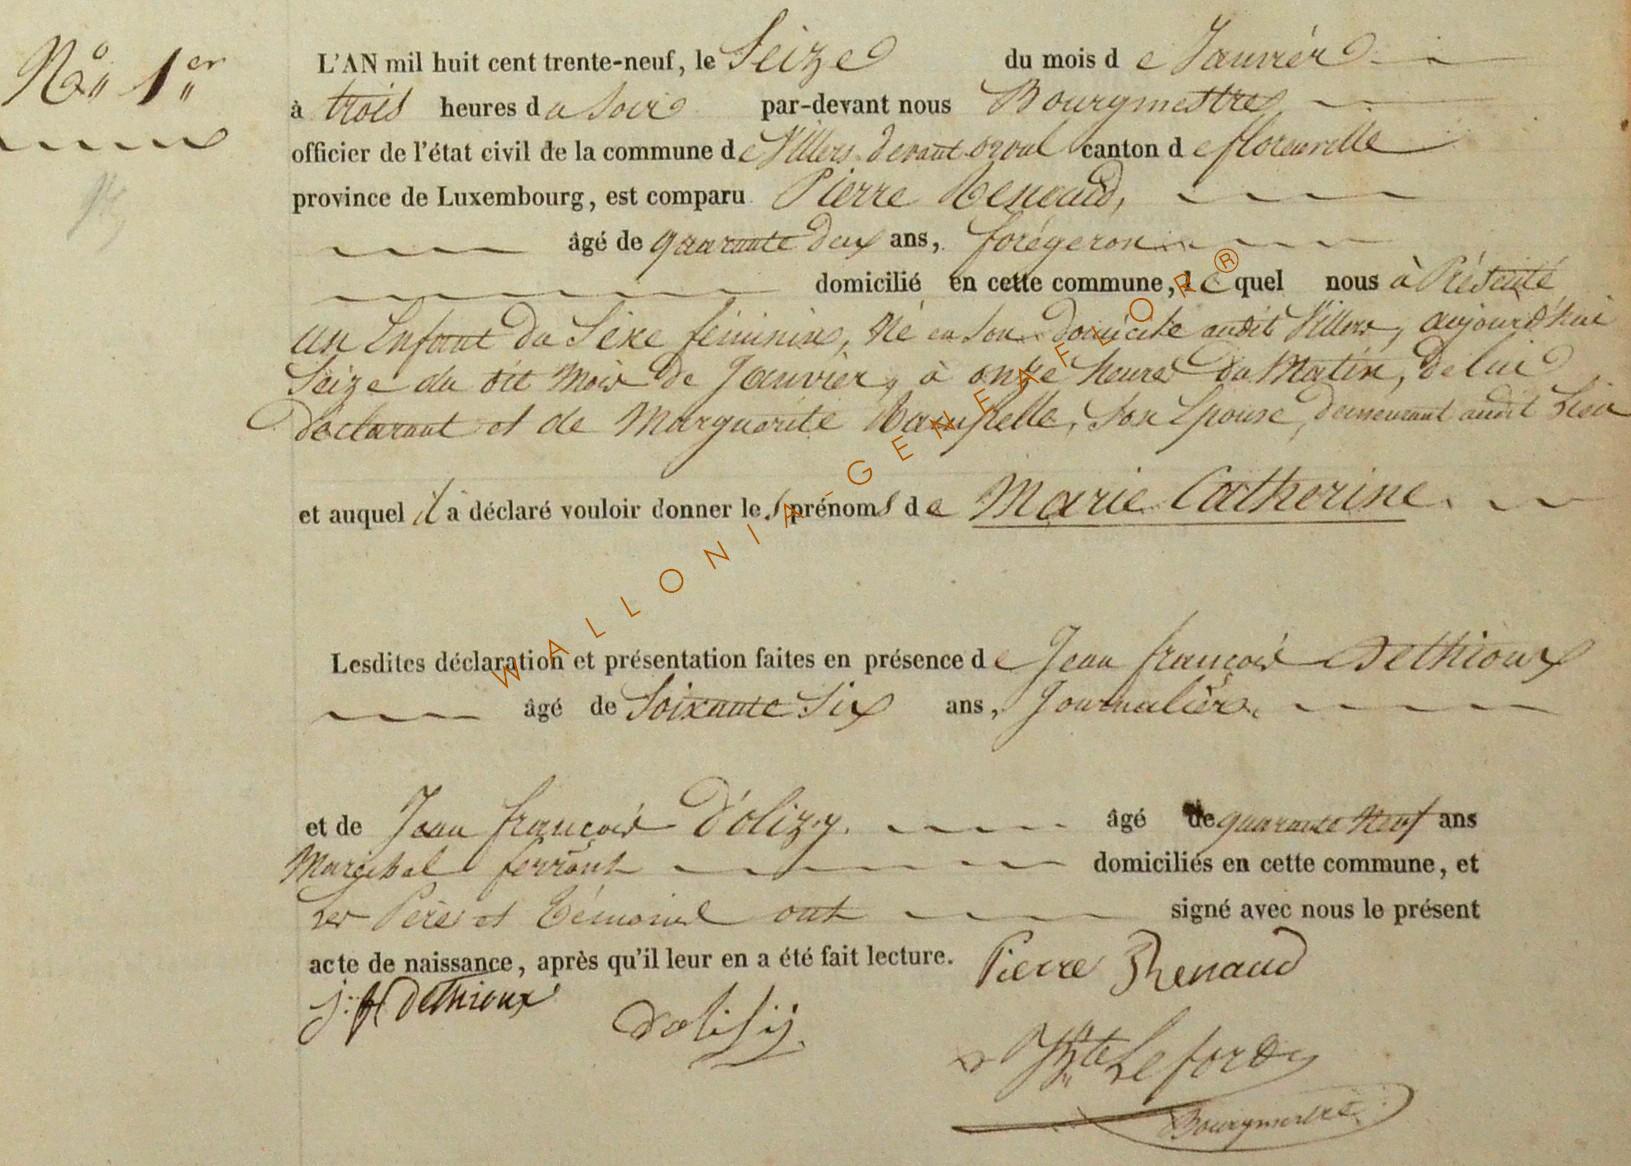 N.° 1.er
L'AN mil huit cent trente-neuf, le Seize du mois de Janviér
à trois heures du Soir par-devant nous Bourgmestre
officier de l'état civil de la commune de Villers devant orval canton de florenville
province de Luxembourg, est comparu Pierre Renaud,
âgé de quarante deux ans, forégeron
domicilié en cette commune, lequel nous à Présenté
un Enfant du Séxe féminin, Né en son domicile audit Villers, aujourd'hui
Seize du dit Mois de Janvier, à onze heures du Matin, de lui
déclarant et de Marguerite, Son Epouse, demeurant audit Lieu
et auquel il a déclaré vouloir donner les prénoms de Marie Catherine.
Lesdites déclaration et présentation faites en présence de Jean françois Dethioux
âgé de Soixante Six ans, Journaliér,
et de Jean françois D'olizy. âgé de quarante Neuf ans
Maréchal ferrant domiciliés en cette commune, et
Les Pére et Témoins ont signé avec nous le présent
acte de naissance, après qu'il leur en a été fait lecture. Pierre Renaud
j. f dethioux
dolisij.
Bte Leford
Bourgmestre
WALLONIA-GENEAFLOR®